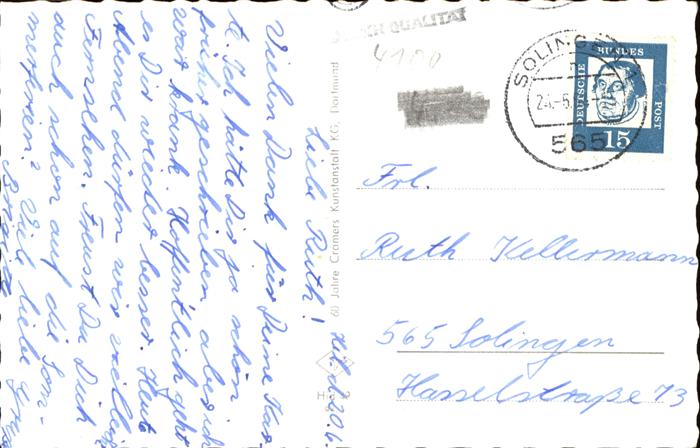 QUALITÄT
4100
SOLINGEN
24.-5.
565
DEUTSCHE
BUNDES
POST
15
60 Jahre Cramers Kunstanstalt KG, Dortmund
H
Frl.
Ruth Kellermann
565 Solingen
Hasselstraße 73
d. 20.
Liebe Ruth!
Vielen Dank für Deine Kar
te. Ich hätte Dir ja schon
früher geschrieben aber ich
war krank. Hoffentlich geht
es Dir wieder besser. Heute
Abend dürfen wir
Fernsehen. Freust Du Dich
auch schon auf die Som-
merferien? Viele liebe